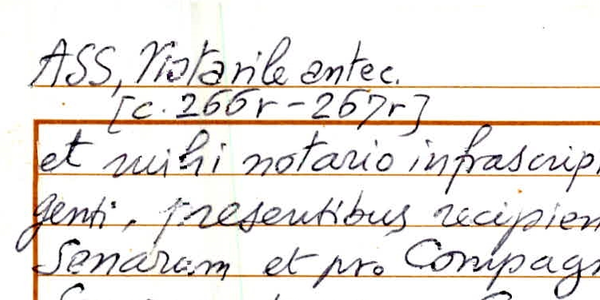 ASS, Notarile antec.
[c. 266r-267r]
et mihi notario infrascrip
genti, presentibus recipien
Senarum et pro Compagn